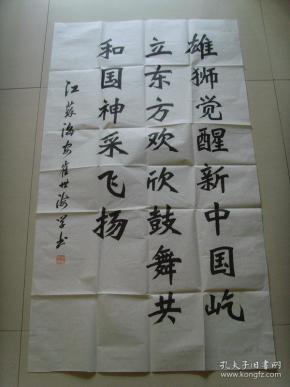 雄狮觉醒新中国屹
立东方欢欣鼓舞共
和国神采飞扬
江苏海安崔世海学书
孔夫子旧书网